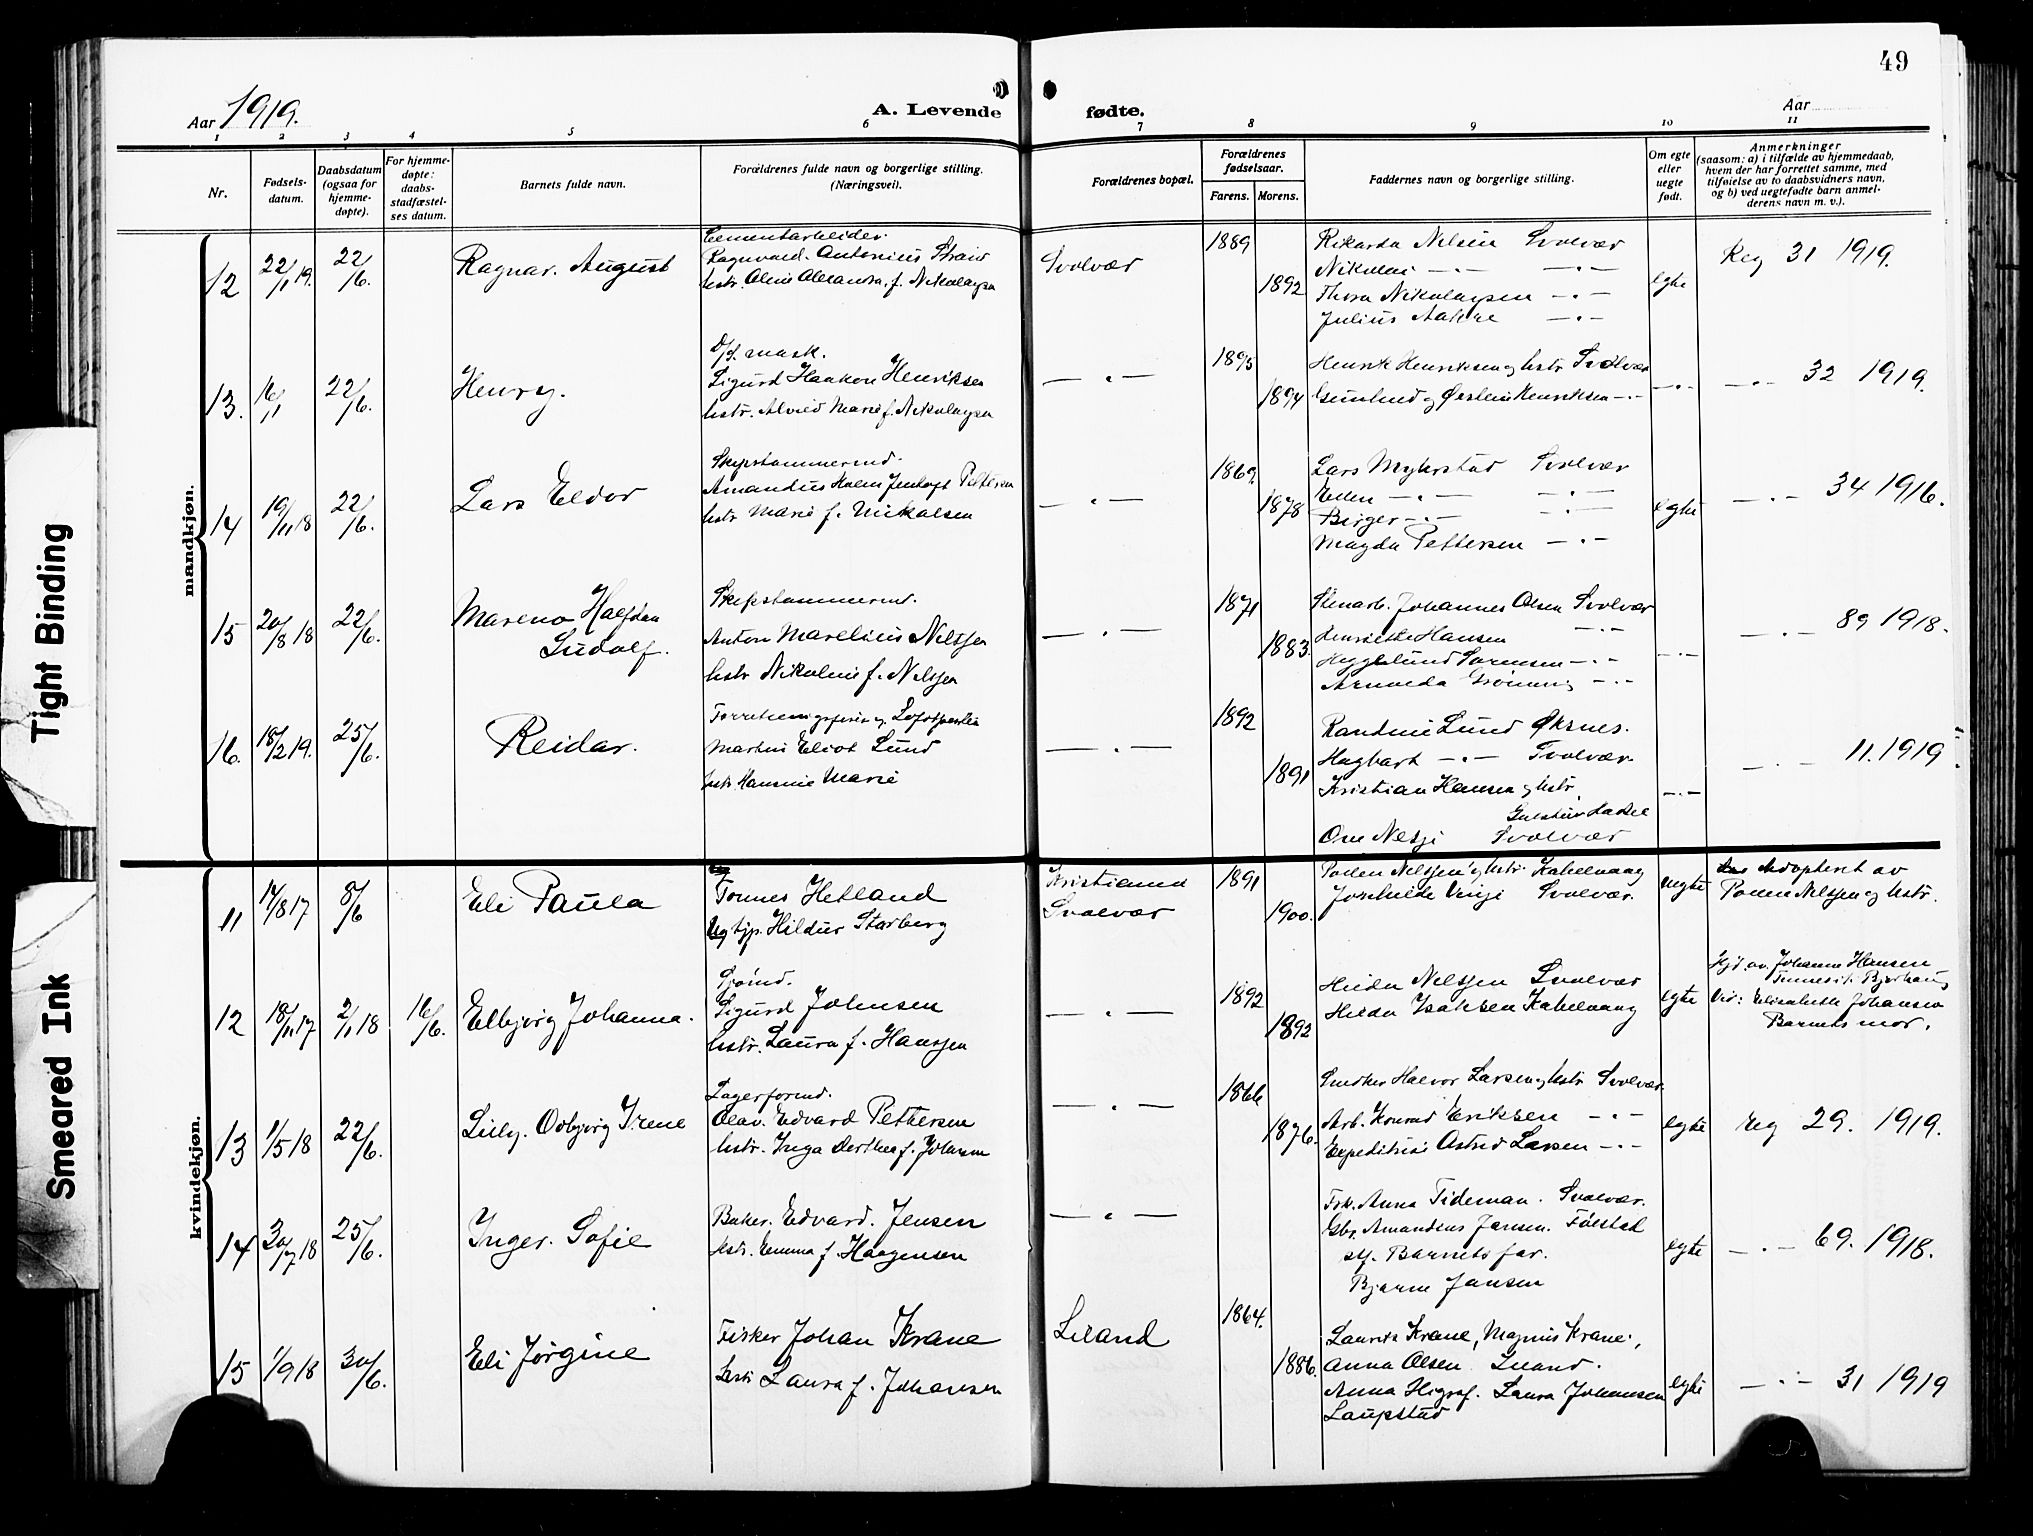 49
Aar 1919.
A. Levende fødte.
Aar
1 2 3 4 5 6 7 8 9 10 11
Nr.
Fødsels-
datum.
Daabsdatum
(ogsaa for
hjemme-
døpte).
For hjemme-
døpte:
daabs-
stadfæstel-
ses datum.
Barnets fulde navn.
Forældrenes fulde navn og borgerlige stilling.
(Næringsvei).
Forældrenes bopæl.
Forældrenes
fødselsaar.
Farens. Morens.
Faddernes navn og borgerlige stilling.
Om egte
eller
uegte
født.
Anmerkninger
(saasom: a) i tilfælde av hjemmedaab,
hvem der har forrettet samme, med
tilføielse av to daabsvidners navn,
og b) ved uegtefødte barn anmel-
derens navn m. v.).
mandkjøn.
12 22/1 19. 22/6. Ragnar. August
Cementarbeider.
Ragnvald. Antonius
hstr. Oline Alexandra. f. Nikolaysen
Svolvær
1889
1892
Rikarda Nilsen Svolvær
Nikolai —"— —"—
Thora Nikolaysen —"—
Julius Aakre —"—
egte
Reg 31 1919.
13. 16/1 22/6. Henry.
D/s. mask.
Sigurd Haakon Henriksen
hstr. Alvild Marie f. Nikolaysen
—"—
1895
1894
Henrik Henriksen og hstr Svolvær
Gunhild og Øistein Henriksen —"—
—"—
—"— 32 1919.
14 19/11 18 22/6. Lars Eldor
Skipstømmermd.
Amandus Holm Jentoft Pettersen
hstr Marie f. Mikalsen
—"—
1869
1878
Lars Myhrstad Svolvær
Ellen —"— —"—
Birger —"— —"—
Magda Pettersen —"—
egte
—"— 34 1916.
15 20/8 18 22/6. Mareno Halfdan
Ludolf.
Skipstømmermd.
Anton Marelius Nilsen
hstr Nikoline f. Nilsen
—"—
1871
1883.
Stenarb. Johannes Olsen Svolvær
Henriette Hansen —"—
Hegglund Sørensen —"—
—"—
—"—
—"— 89 1918.
16. 18/2 19. 25/6. Reidar.
Martin Eliot Lund
hstr Hansine Marie
—"—
1892
1891
Randine Lund Øksnes.
Hagbart —"— Svolvær
Kristian Hansen og hstr.
Svolvær
—"—
—"— 11. 1919
kvindekjøn.
11 17/8 17 8/6 Eli Paula
Tønnes Hetland
Ug tjp. Hildur Storberg
Kristiania
Svolvær
1891
1900.
Polen Nilsen og hstr. Kabelvaag
Svolvær.
uegte
Adoptert av
Polen Nilsen og hstr.
12 18/11 17 2/1 18 16/6. Elbjørg Johanna.
Sjømd.
Sigurd Johnsen
hstr. Laura f. Hansen
—"—
1892
1892
Hilda Nilsen Svolvær
Hilda Isaksen Kabelvaag
egte
Hjd. av Johanna Hansen
Vid: Elisabeth Johansen
Barnets mor.
13 1/5 18 22/6. Lilly. Odbjørg Irene
Lagerformd.
Olav. Edvard Pettersen
hstr. Inga Dorthea f. Johansen
—"—
1866
1876.
Snedker Halvor Larsen og hstr Svolvær
Arb. Konrad Eriksen —"—
Expeditrise Astrid Larsen —"—
egte
reg 29. 1919.
14 30/7 18 25/6. Inger. Sofie
Baker. Edvard. Jensen
hstr. Emma f. Haagensen
—"—
Frk. Anna Tideman. Svolvær.
Gbr. Amandus Jansen.
stf. Barnets far.
Bjarne Jansen
egte
—"— 69. 1918.
15 1/9 18 30/6. Eli Jørgine
Fisker Johan Krane
hstr Laura f. Johansen
Liland
1864.
1886.
Laurits Krane, Magnus Krane,
Anna Olsen Liland.
Anna Laura Johansen
Laupstad
egte
—"— 31 1919
Tight Binding
Smeared Ink